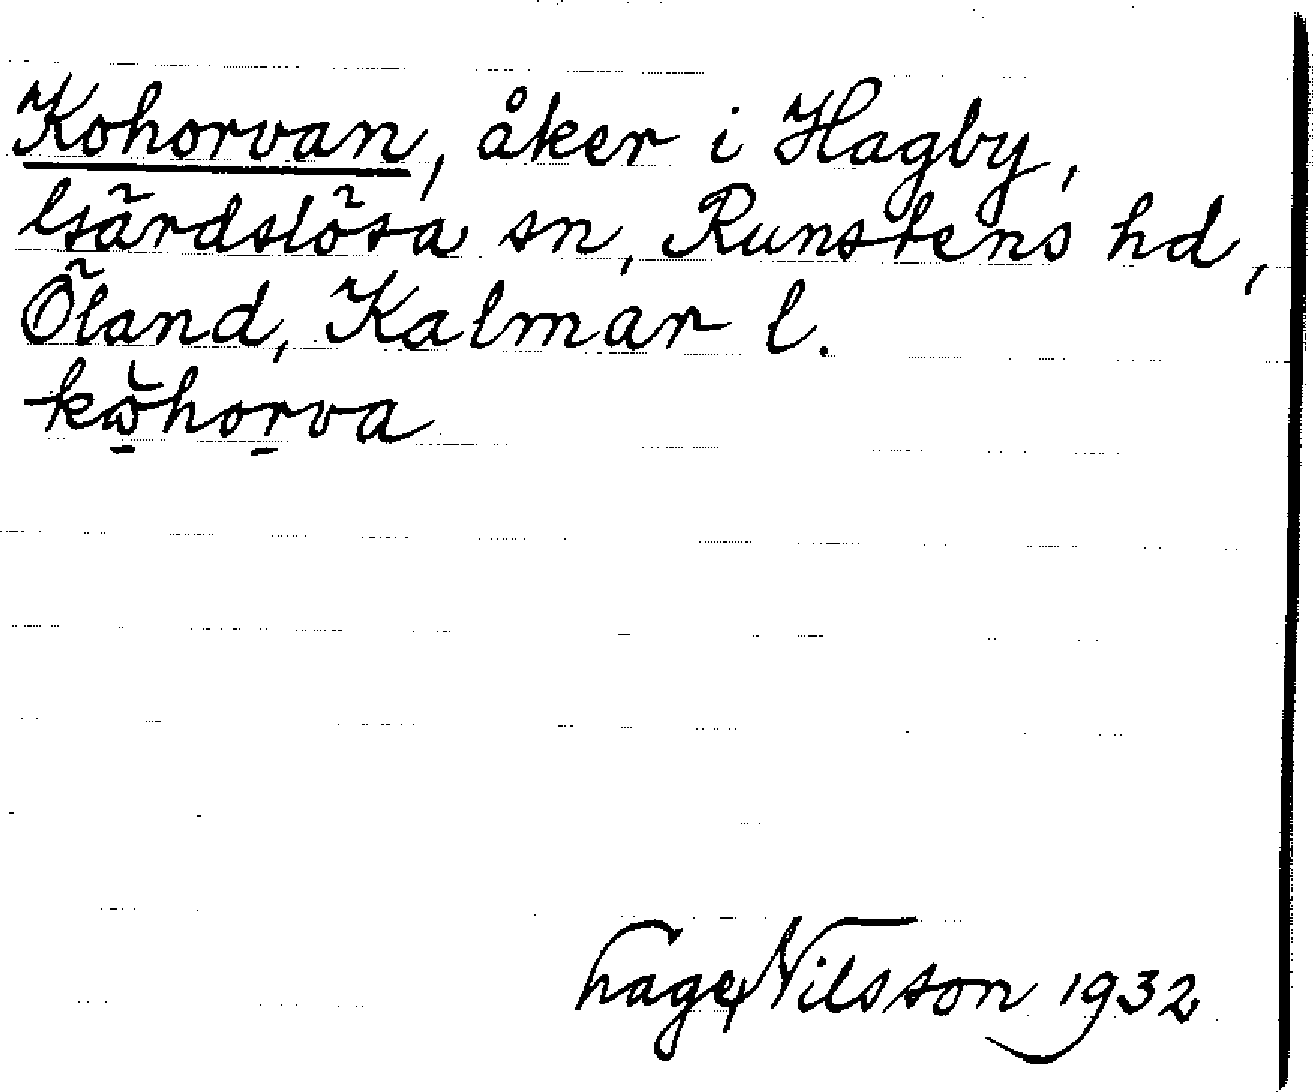 Kohorvan, åker i Hagby,
Gärdslösa sn, Runstens hd,
Öland, Kalmar l.
kὼhorva
Hage Nilsson 1932